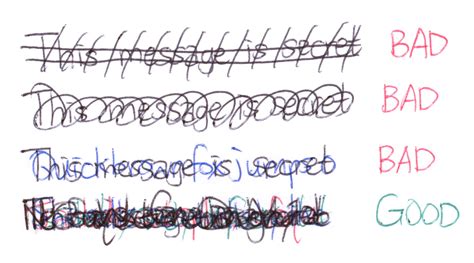 This message is secret BAD
This message is secret BAD
This message is secret BAD
GOOD